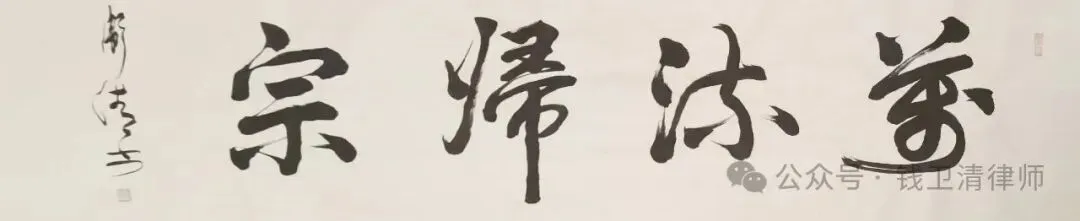 萬流歸宗
公众号 · 钱卫清律师